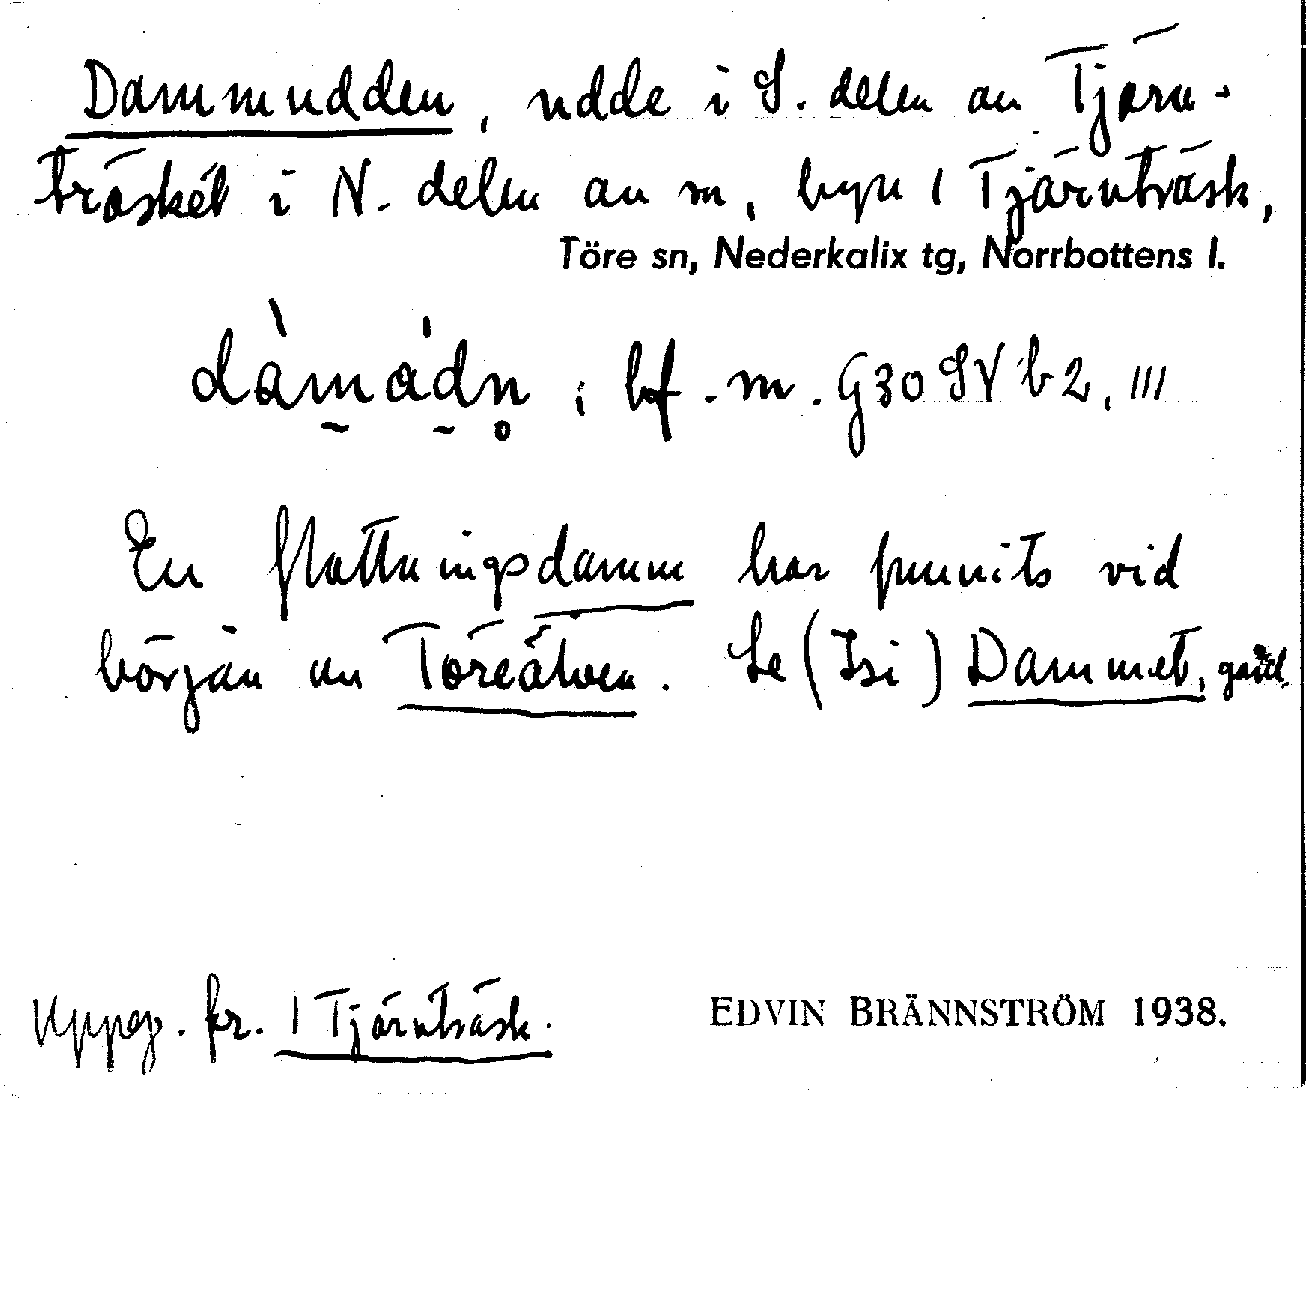 Dammudden, udde i S. delen av Tjärn-
träsket i N. delen av m, byn 1 Tjärnträsk,
Töre sn, Nederkalix tg, Norrbottens l.
dàmádn; bf. m. G30 SV b2, III
En flottningsdamm har funnits vid
början av Töreälven. Se (Isi) Dammet, gård.
Uppg. fr. 1 Tjärnträsk.
EDVIN BRÄNNSTRÖM 1938.